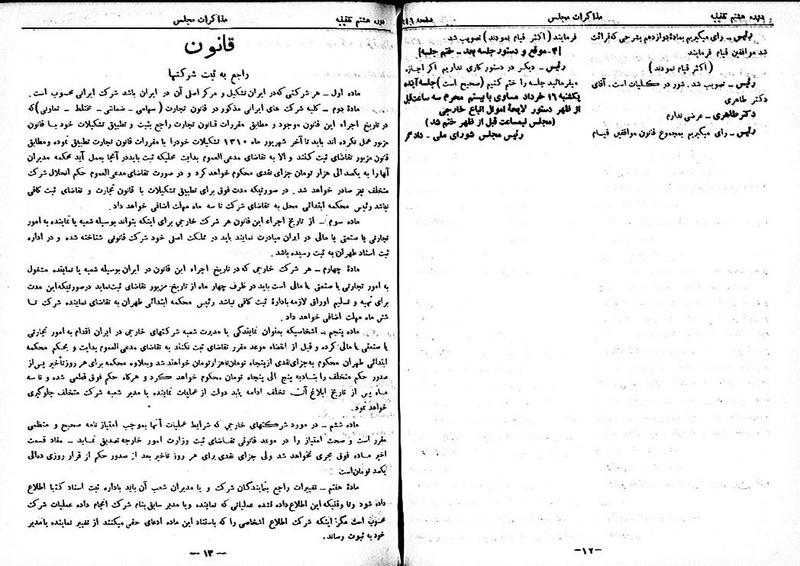 دوره هشتم تقنینیه
مذاکرات مجلس
صفحه ۶۴۶
رئیس ــ رأی میگیریم بمادهٔ دوازدهم بشرحی که قرائت
شد موافقین قیام فرمایند
(اکثر قیام نمودند)
رئیس ــ تصویب شد. شور در کلیات است. آقای
دکتر طاهری
دکتر طاهری ــ عرضی ندارم
رئیس ــ رأی میگیریم بمجموع قانون موافقین قیام
فرمایند (اکثر قیام نمودند) تصویب شد.
[۴ـ موقع و دستور جلسه بعد ــ ختم جلسه]
رئیس ــ دیگر در دستور کاری نداریم اگر اجازه
میفرمائید جلسه را ختم کنیم (صحیح است) جلسه آینده
یکشنبه ۱۶ خرداد مساوی با بیستم محرم سه ساعت قبل
از ظهر دستور لایحهٔ اموال اتباع خارجی
(مجلس نیمساعت قبل از ظهر ختم شد)
رئیس مجلس شورای ملی ــ دادگر
ــ ۱۲ ــ
مذاکرات مجلس
دوره هشتم تقنینیه
قانون
راجع به ثبت شرکتها
ماده اول ــ هر شرکتی که در ایران تشکیل و مرکز اصلی آن در ایران باشد شرکت ایرانی محسوب است.
مادهٔ دوم ــ کلیه شرکت های ایرانی مذکور در قانون تجارت (سهامی ــ ضمانتی ــ مختلط ــ تعاونی) که
در تاریخ اجراء این قانون موجود و مطابق مقررات قانون تجارت راجع بثبت و تطبیق تشکیلات خود با قانون
مزبور عمل نکرده اند باید تا آخر شهریور ماه ۱۳۱۰ تشکیلات خود را با مقررات قانون تجارت تطبیق نموده و مطابق
قانون مزبور تقاضای ثبت کنند و الا به تقاضای مدعی العموم بدایت محلیکه ثبت باید در آنجا بعمل آید محکمه مدیران
آنها را به یکصد الی هزار تومان جزای نقدی محکوم خواهد کرد و در صورت تقاضای مدعی العموم حکم انحلال شرکت
متخلف نیز صادر خواهد شد. در صورتیکه مدت فوق برای تطبیق تشکیلات با قانون تجارت و تقاضای ثبت کافی
نباشد رئیس محکمه ابتدائی محل به تقاضای شرکت تا سه ماه مهلت اضافی خواهد داد.
ماده سوم ــ از تاریخ اجراء این قانون هر شرکت خارجی برای اینکه بتواند بوسیله شعبه یا نماینده به امور
تجارتی یا صنعتی یا مالی در ایران مبادرت نماید باید در مملکت اصلی خود شرکت قانونی شناخته شده و در اداره
ثبت اسناد طهران به ثبت رسیده باشد.
مادهٔ چهارم ــ هر شرکت خارجی که در تاریخ اجراء این قانون در ایران بوسیله شعبه یا نماینده مشغول
به امور تجارتی یا صنعتی یا مالی است باید در ظرف چهار ماه از تاریخ مزبور تقاضای ثبت نماید در صورتیکه این مدت
برای تهیه و تسلیم اوراق لازمه بادارهٔ ثبت کافی نباشد رئیس محکمه ابتدائی طهران به تقاضای نماینده شرکت تا
شش ماه مهلت اضافی خواهد داد.
ماده پنجم ــ اشخاصیکه بعنوان نمایندگی یا مدیریت شعبه شرکتهای خارجی در ایران اقدام به امور تجارتی
یا صنعتی یا مالی کرده و قبل از انقضاء موعد مقرر تقاضای ثبت نکنند به تقاضای مدعی العموم بدایت و بحکم محکمه
ابتدائی طهران محکوم به جزای نقدی از پنجاه تومان تا هزار تومان خواهند شد و بعلاوه محکمه برای هر روز تأخیر پس از
صدور حکم متخلف را بتادیه پنج الی پنجاه تومان محکوم خواهد کرد و هرگاه حکم فوق قطعی شده و تا سه
ماه پس از تاریخ ابلاغ آن تخلف ادامه یابد دولت از عملیات نماینده یا مدیر شعبه شرکت متخلف جلوگیری
خواهد نمود.
ماده ششم ــ در مورد شرکتهای خارجی که شرایط عملیات آنها بموجب امتیاز نامه صحیح و منظمی
مقرر است و صحت امتیاز را در موعد قانونی تقاضای ثبت وزارت امور خارجه تصدیق نماید ــ مفاد قسمت
اخیر ماده فوق مجری نخواهد شد ولی جزای نقدی برای هر روز تاخیر بعد از صدور حکم از قرار روزی
یکصد تومان است
مادهٔ هفتم ــ تغییرات راجع بنمایندگان شرکت و یا مدیران شعب آن باید باداره ثبت اسناد کتبا اطلاع
داده شود و تا وقتیکه این اطلاع داده نشده عملیاتی که نماینده و یا مدیر سابق بنام شرکت انجام داده عملیات شرکت
محسوب است مگر اینکه شرکت اطلاع اشخاصی را که باستناد این ماده ادعای حقی میکنند از تغییر نماینده یا مدیر
خود به ثبوت رساند.
ــ ۱۳ ــ